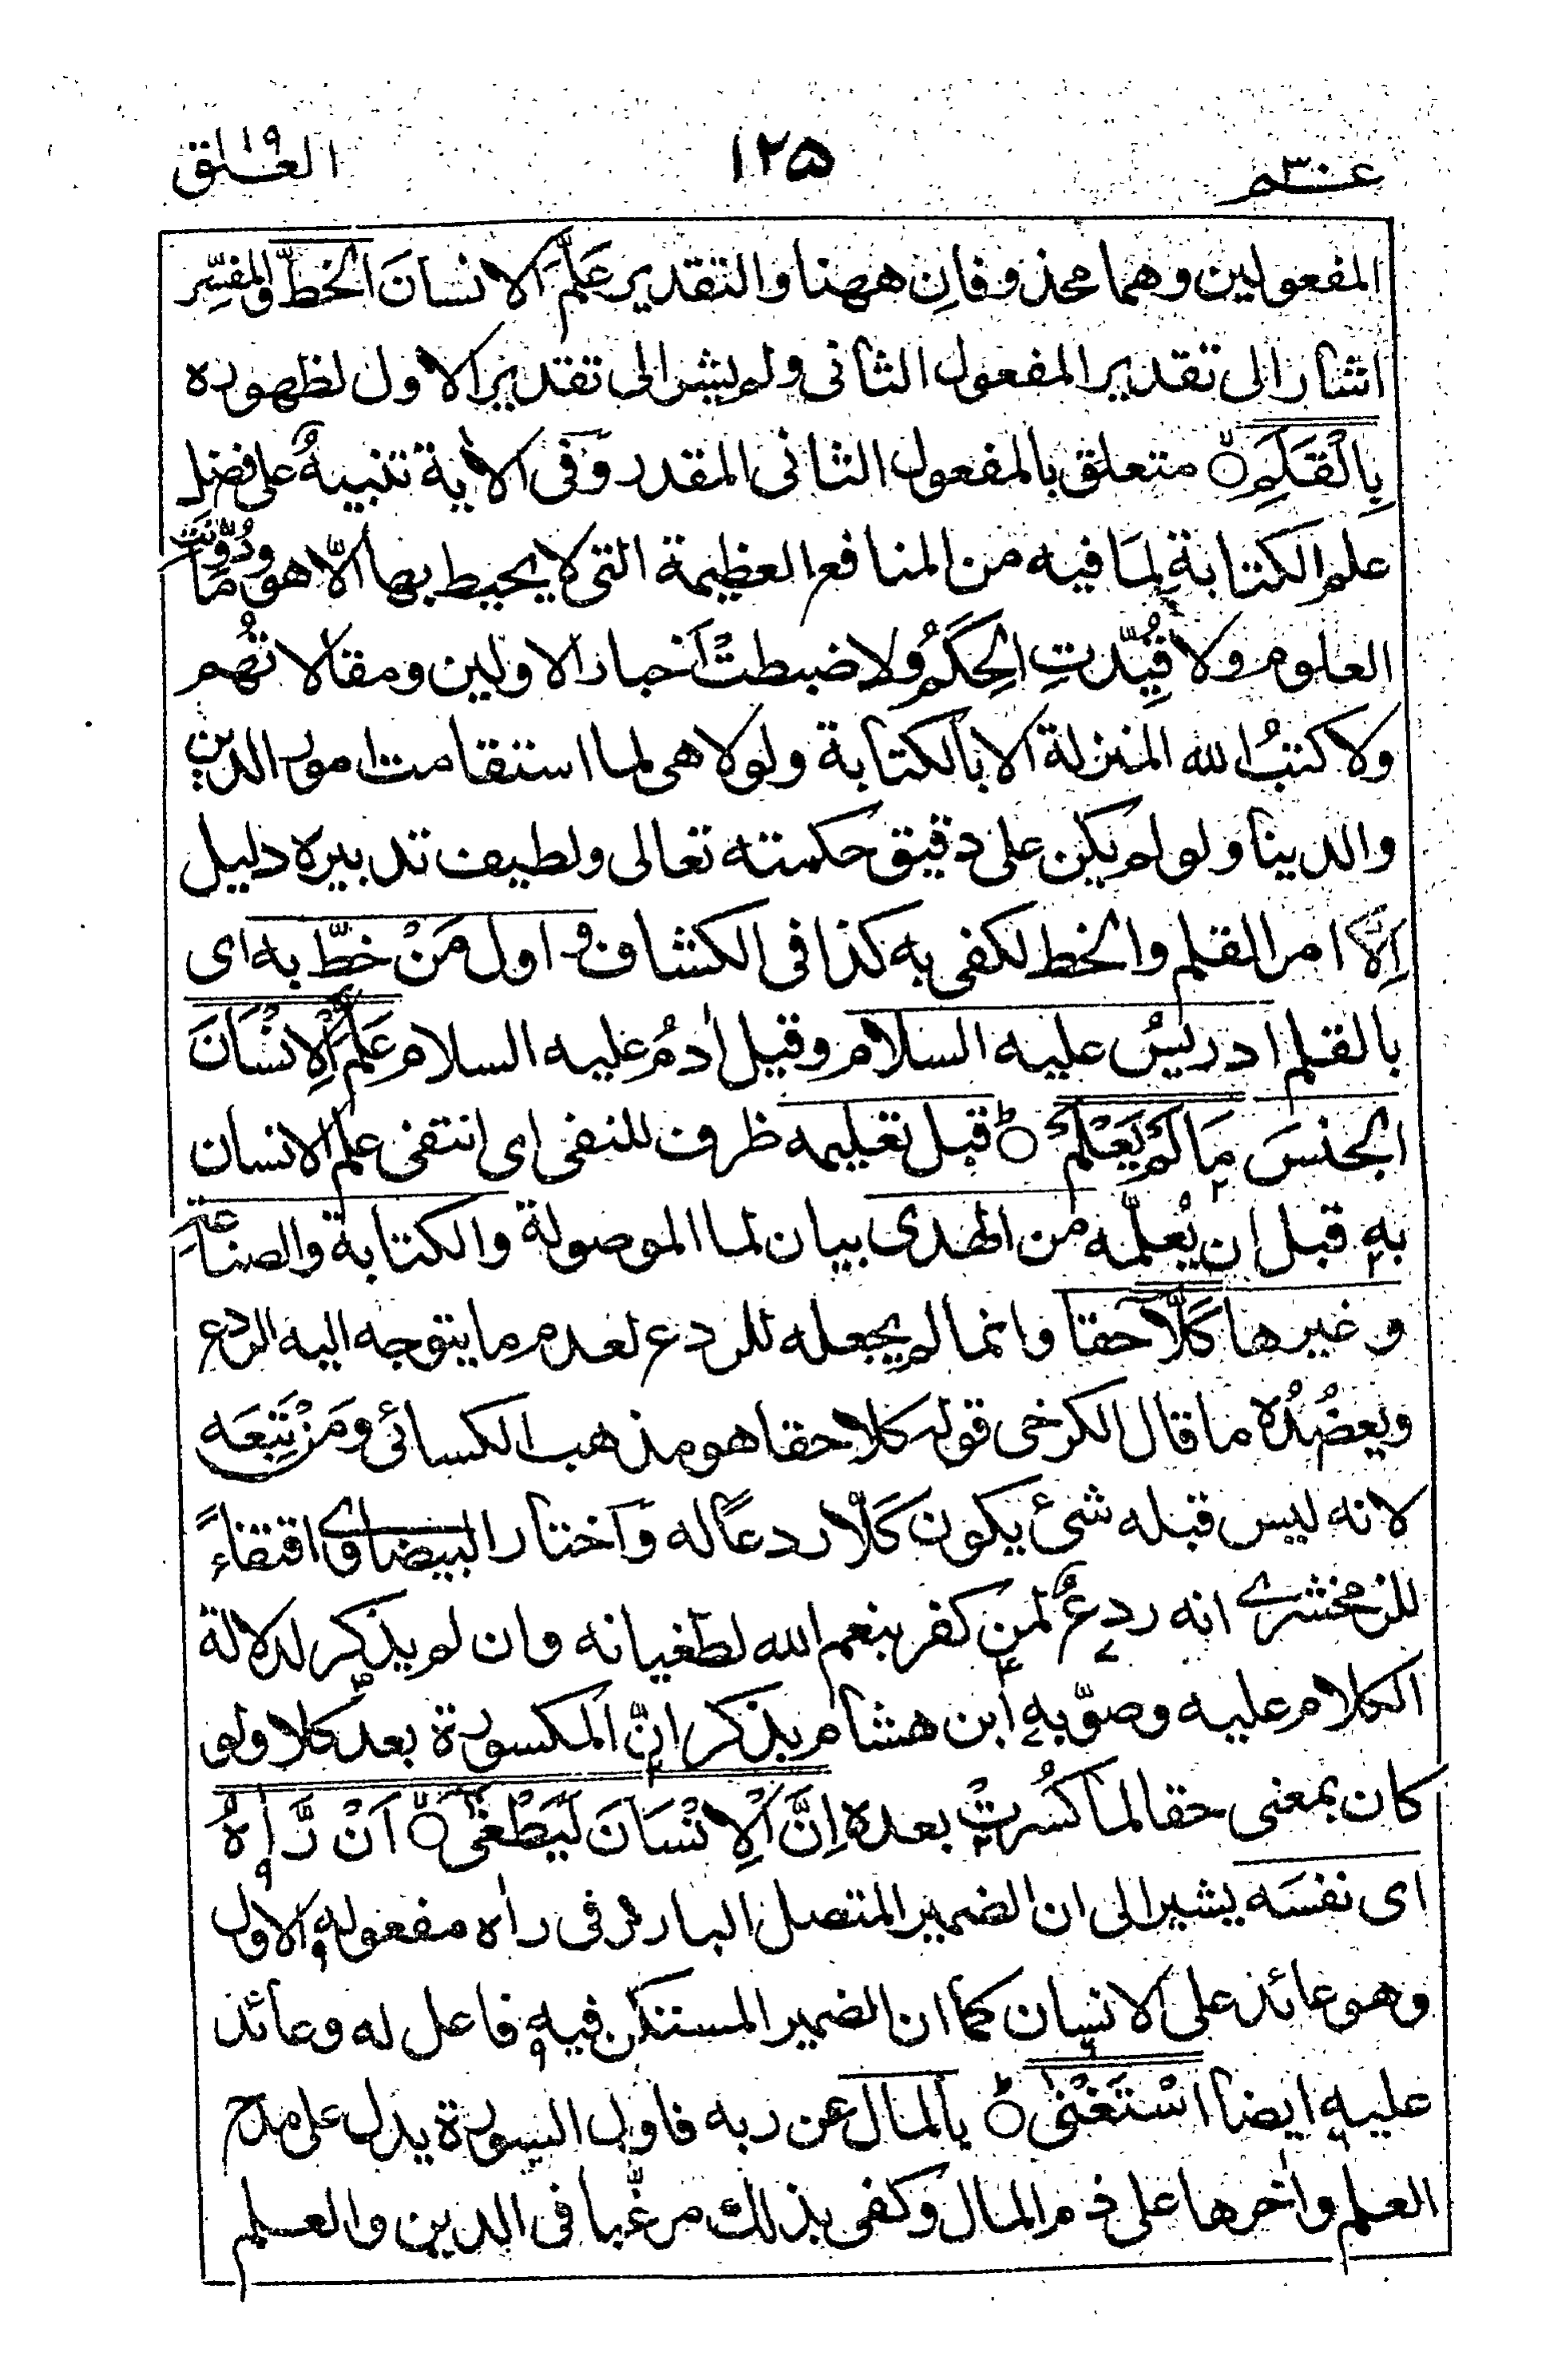 عم ٣٠
١٢٥
العلق ١٩
المفعولين وهما محذوفان ههنا والتقدير عَلَّمَ الانسانَ الخطَّ والمفسِّر
اشار الى تقدير المفعول الثانى ولم يشر الى تقدير الاول لظهوره
بِالْقَلَمِۙ متعلق بالمفعول الثانى المقدر وفى الأية تنبيهٌ على فضل
علم الكتابة لِمَا فيه من المنافع العظيمة التى لا يحيط بها الّا هو وما دُوِّنَت
العلوم ولا قُيِّدَتِ الحِكَمُ ولا ضبطتْ اَخبار الاولين ومقالاتُهم
ولا كتبُ الله المنزلة الا بالكتابة ولولا هى لما استقامت امور الدين
والدنيا ولو لم يكن على دقيق حكمته تعالى ولطيف تدبيره دليل
اِلّا امر القلم والخط لكفى به كذا فى الكشاف و اول مَنْ خطّ به اى
بالقلم ادريسُ عليه السلام وقيل أدمُ عليه السلام عَلَّمَ الْاِنْسَانَ
الجنسَ مَا لَمْ يَعْلَمْؕ قبل تعليمه ظرف للنفى اى انتفى علم الانسان
به قبل ان يُعلّمه من الهدى بيان لما الموصولة والكتابة والصناعة
وغيرها كَلَّا حقا وانما لم يجعله للردع لعدم ما يتوجه اليه الردع
ويعضُدُه ما قال الكرخى قوله كلا حقا هو مذهب الكسائى ومَنْ تَبِعَه
لانه ليس قبله شئ يكون كَلَّا ردعًا له وَاختار البيضاوى اقتفاءً
للزمخشرى انه ردعٌ لمن كفر بنعم الله لطغيانه وان لم يذكر لدلالة
الكلام عليه وصوّبه ابن هشام بذكر انَّ المكسورة بعد كلا ولو
كان بمعنى حقا لما كُسرتْ بعده اِنَّ الْاِنْسَانَ لَيَطْغٰىۙ اَنْ رَّاٰهُ
اى نفسَه يشير الى ان الضمير المتصل البارز فى رأه مفعوله الاول
وهو عائد على الانسان كما ان الضمير المستكن فيه فاعل له وعائد
عليه ايضا اسْتَغْنٰىؕ بالمال عن ربه فاول السورة يدل على مدح
العلم وأخرها على ذم المال وكفى بذلك مرغّبا فى الدين والعلم